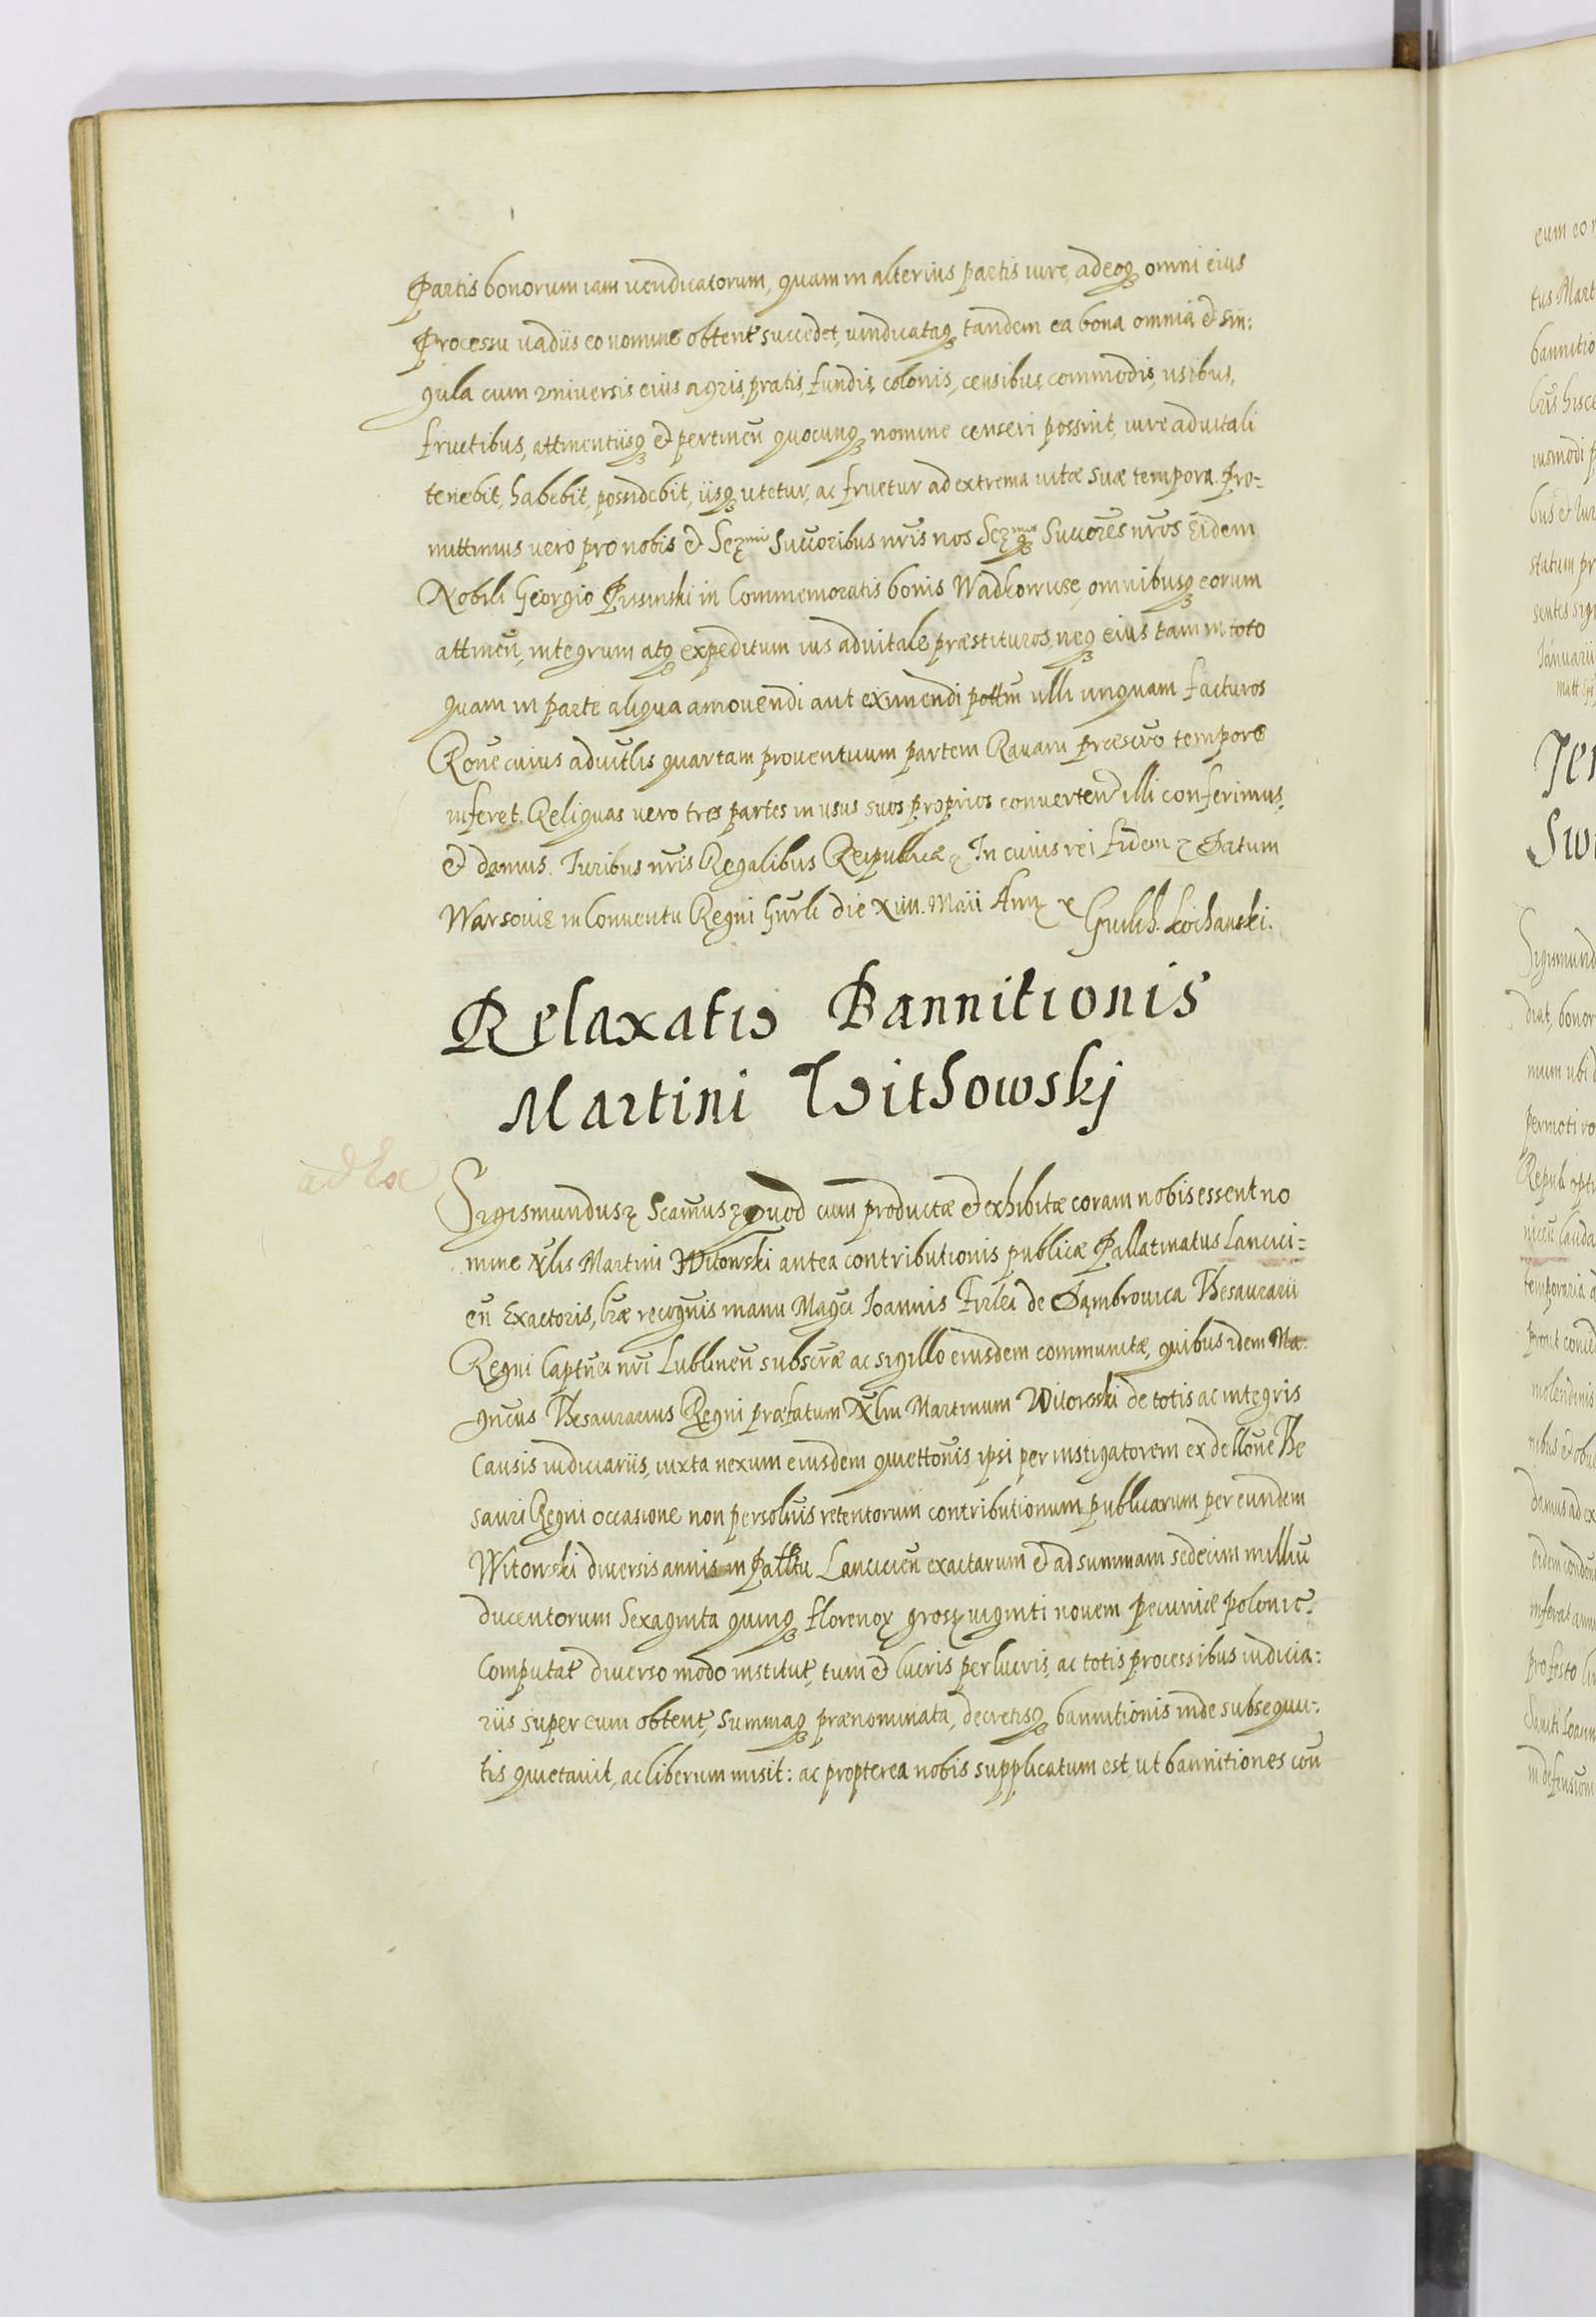 Partis bonorum iam vendicatorum, quam in alterius partis iure, adeoq3 omni eius
Processu vadiis eo nomine obtent̃ succedet, vindicataq3 tandem ea bona omnia et sin:
gula cum vniversis eius agris, pratis, fundis, colonis, censibus, commodis, usibus,
fructibus, attinentiisq3 et pertineñ quocunq3 nomine censeri possint, iure aduitali
tenebit, habebit, possidebit, iisq3 utetur, ac fruetur ad extrema vitæ suæ tempora. Pro-
mittimus vero pro nobis et Sermis Succoribus nr̃is nos Sermosq3 Succores nr̃os Eidem
Nobili Georgio in Commemoratis bonis omnibusq3 eorum
attineñ, integrum atq3 expeditum ius aduitale præstituros, neq3 eius tam in toto
quam in parte aliqua amovendi aut eximendi pottm̃ ulli unquam facturos
Rõne cuius aduitlis quartam proventuum partem Ravam præscr̃o tempore
inferet. Reliquas vero tres partes in usus suos proprios convertend illi conferimus,
et damus. Iuribus nr̃is Regalibus Reipublicæ In cuius rei fidem Datum
Warsoviæ in Conventu Regni Gnrli die Xiiii. Maii Ann
Relaxatio Bannitionis
Martini Withowskj
Sigismundus Scamus Quod cum productæ et exhibitæ coram nobis essent no
mine Nlis Martini Witowski antea contributionis publicæ Pallatinatus Lancici=
eñ Exactoris, lræ recognis manu Magci Ioannis Firlei de Dąmbrovica Thesaurarii
Regni Captnei nr̃i Lublineñ subscræ ac sigillo eiusdem communitæ, quibus idem Ma:
gncus Thesaurarius Regni præfatum Nlm Martinum Witowski de totis ac integris
Causis iudiciariis, iuxta nexum eiusdem quiettonis ipsi per instigatorem ex dellõne The
sauri Regni occasione non persolnis retentorum contributionum publicarum per eundem
Witowski diversis annis in Palttu Lancicieñ exactarum et ad summam sedecim milliũ
ducentorum Sexaginta quinq3 florenox gross viginti novem pecuniæ polonic̃.
Computat̃ diverso modo institut̃, tum et lucris perlucris, ac totis processibus iudicia:
riis super eum obtent̃, summaq3 prænominata, decretisq3 bannitionis inde subsequu:
tis quietavit, ac liberum misit: ac propterea nobis supplicatum est, ut bannitiones coñ